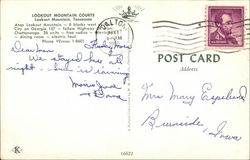 LOOKOUT MOUNTAIN COURTS
Lookout Mountain, Tennessee
Atop Lookout Mountain - 6 blocks west
City on Georgia 157 - follow Highway
Chattanooga. 26 units - free radio -
- dining room - electric heat
Phone VErnon 1-
Dear Nora
We stayed here all
night. - is raining
&
DALTON
POST CARD
Address
Mrs Mary Espelund
Burnside,
Iowa
K
16621